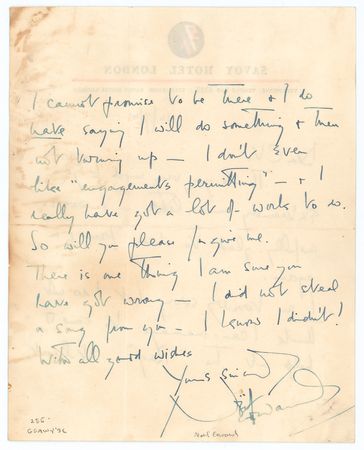 SAVOY HOTEL LONDON
I cannot promise to be there & I do
hate saying I will do something & then
not turning up — I don't even
like "engagements permitting" — & I
really have got a lot of work to do.
So will you please forgive me.
There is one thing I am sure you
have got wrong — I did not steal
a song from you — I know I didn't!
With all good wishes
Yours sincerely
Noel Coward